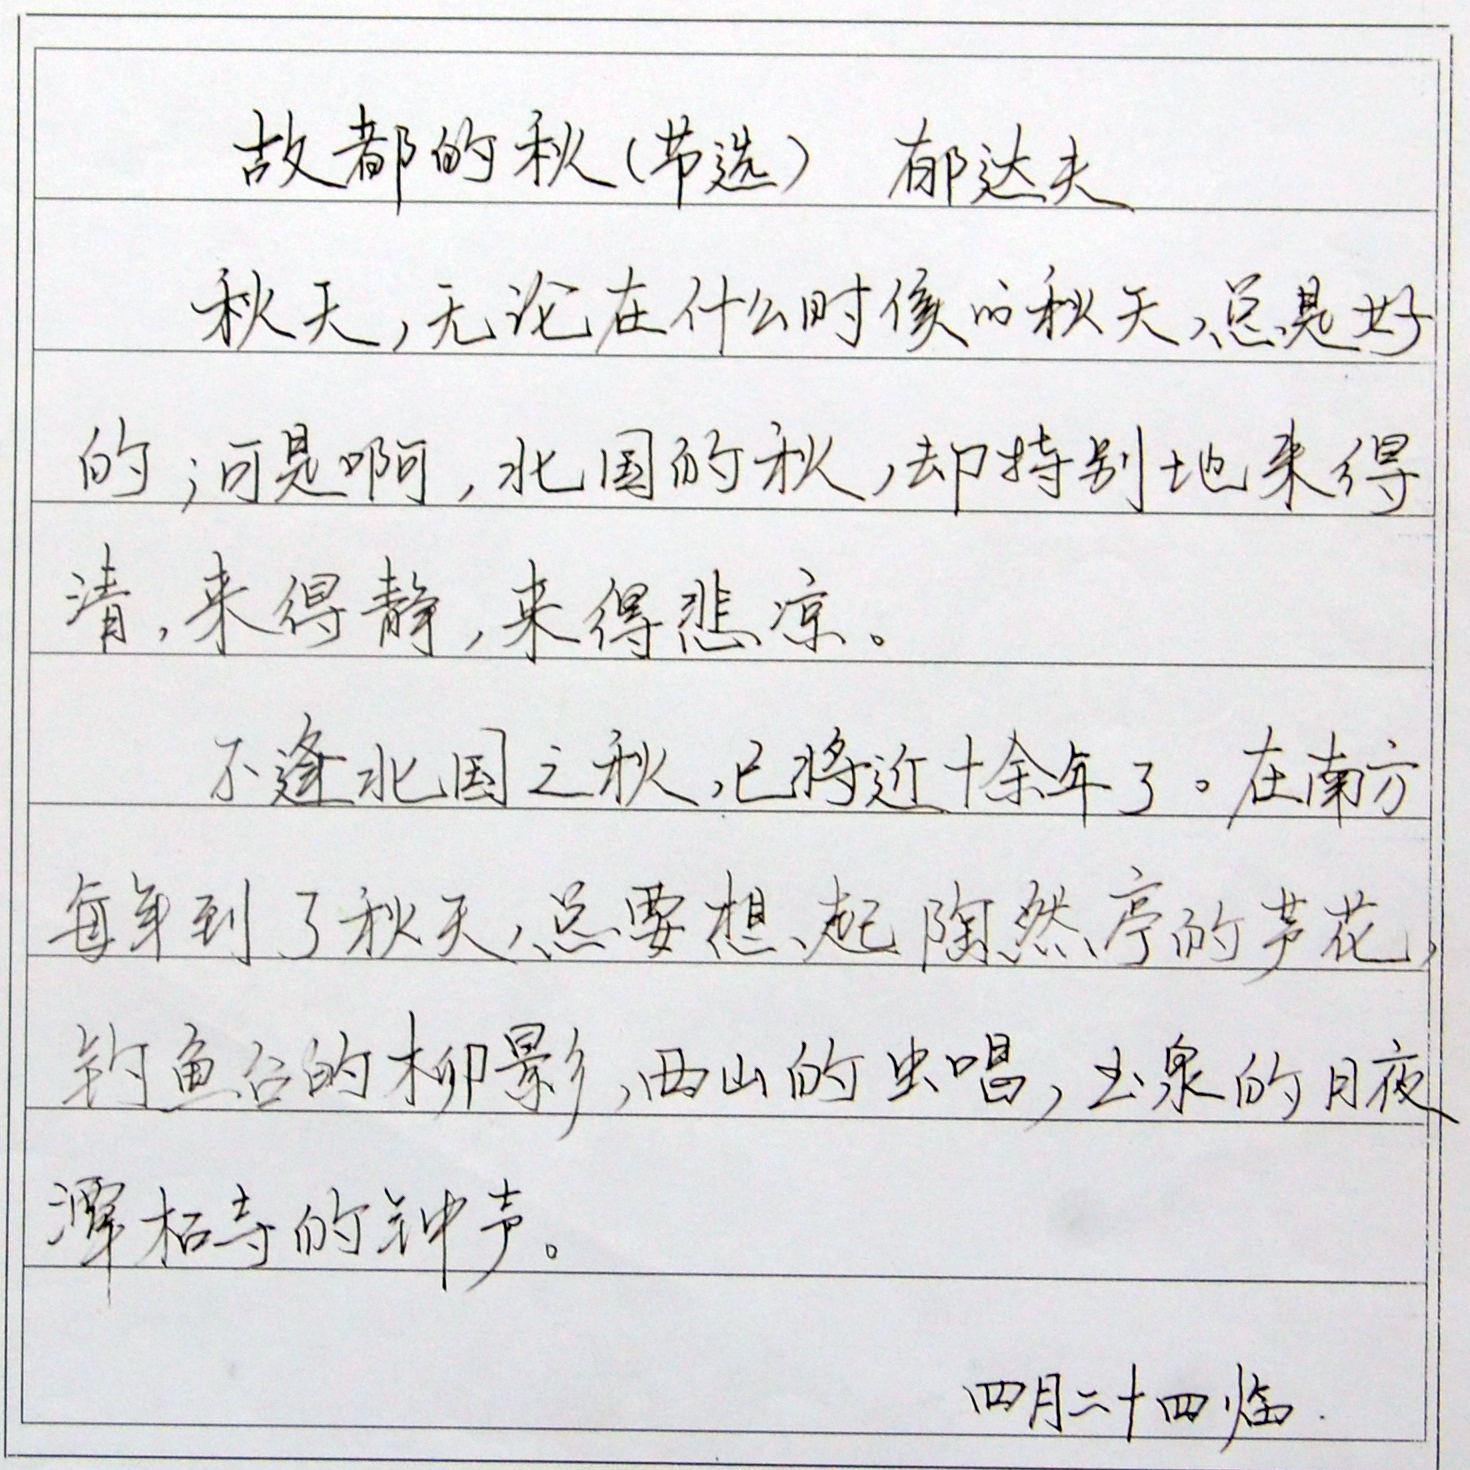 故都的秋(节选) 郁达夫
秋天,无论在什么时候的秋天,总是好
的;可是啊,北国的秋,却特别地来得
清,来得静,来得悲凉。
不逢北国之秋,已将近十余年了。在南方
每年到了秋天,总要想起陶然亭的芦花,
钓鱼台的柳影,西山的虫唱,玉泉的月夜
潭柘寺的钟声。
四月二十四临.